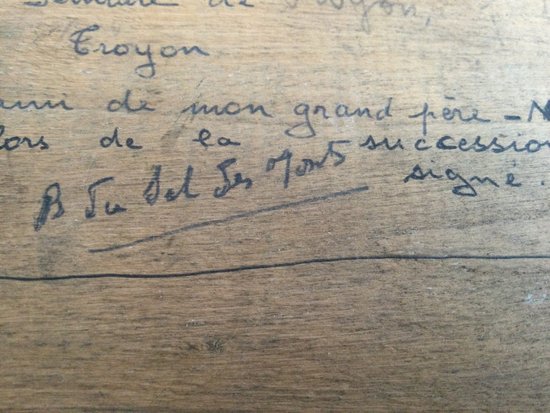 de Troyon,
Troyon
ami de mon grand père - N
lors de la succession
B Du Val Des Monts signé.